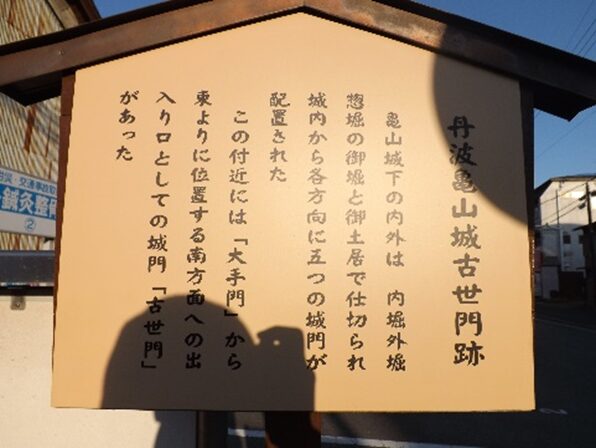 丹波亀山城古世門跡
亀山城下の内外は　内堀外堀
惣堀の御堀と御土居で仕切られ
城内から各方向に五つの城門が
配置された
この付近には「大手門」から
東よりに位置する南方面への出
入り口としての城門「古世門」
があった
労災・交通事故取
鍼灸整骨
②